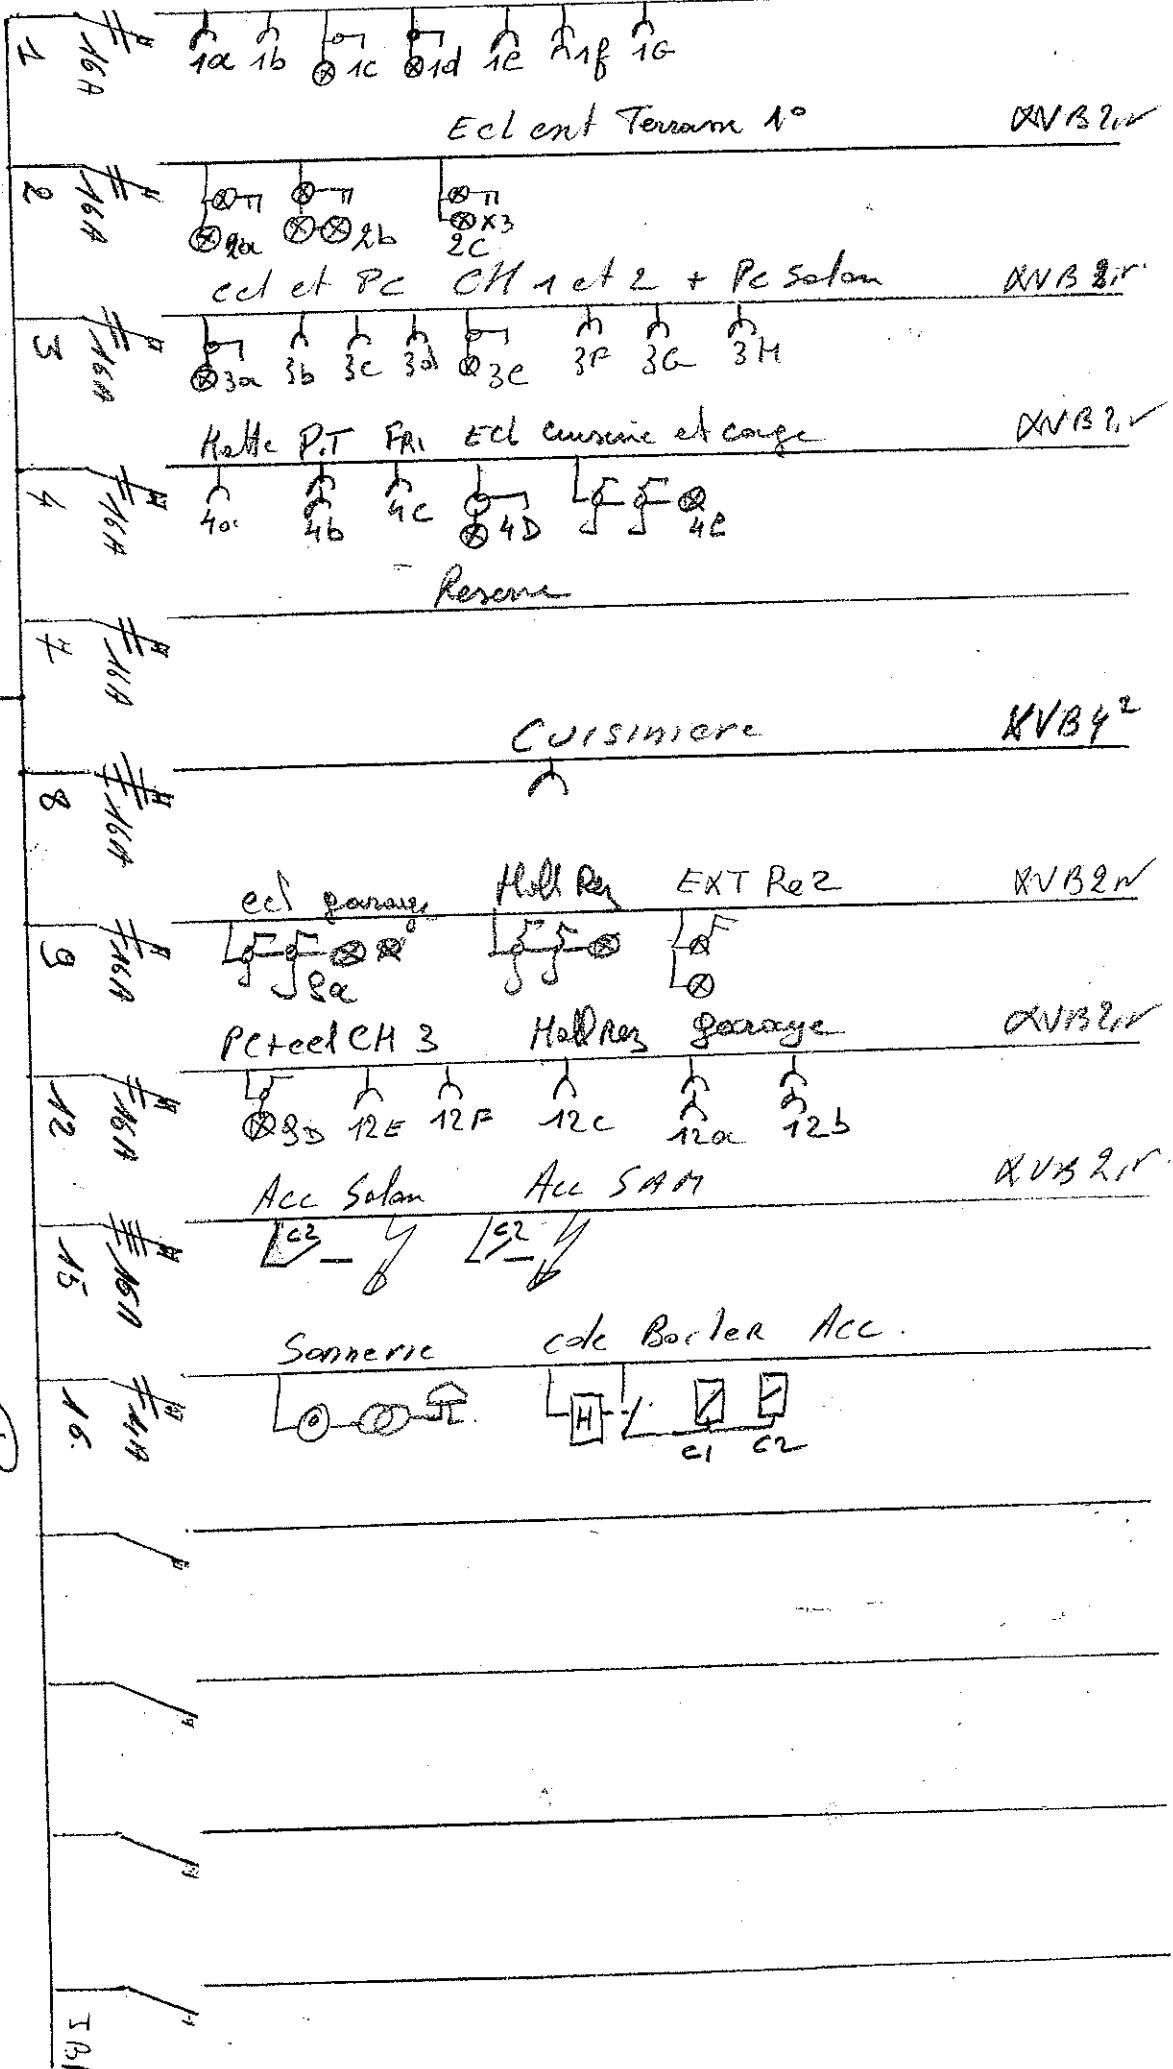 1 16A 1a 1b 1c 1d 1e 1f 1G
Ecl ext Terrasse 1° XVB 2,5
2 16A 2a 2b x3 2C
ecl et PC CH 1 et 2 + Pc Salon XVB 2,5
3 16A 3a 3b 3c 3d 3e 3F 3G 3H
Hotte P.T FRI Ecl cuisine et cage XVB 2,5
4 16A 4a 4b 4c 4D 4E
Reserve
7 16A
Cuisiniere XVB 4²
8 16A
ecl garage Hall Rez EXT Rez XVB 2,5
9 16A 9a
PC+ecl CH 3 Hall Rez garage XVB 2,5
12 16A 9D 12E 12F 12C 12a 12b
Acc Salon Acc SAM XVB 2,5
15 16A C2 C2
Sonnerie cde Boiler Acc.
16. 4A H C1 C2